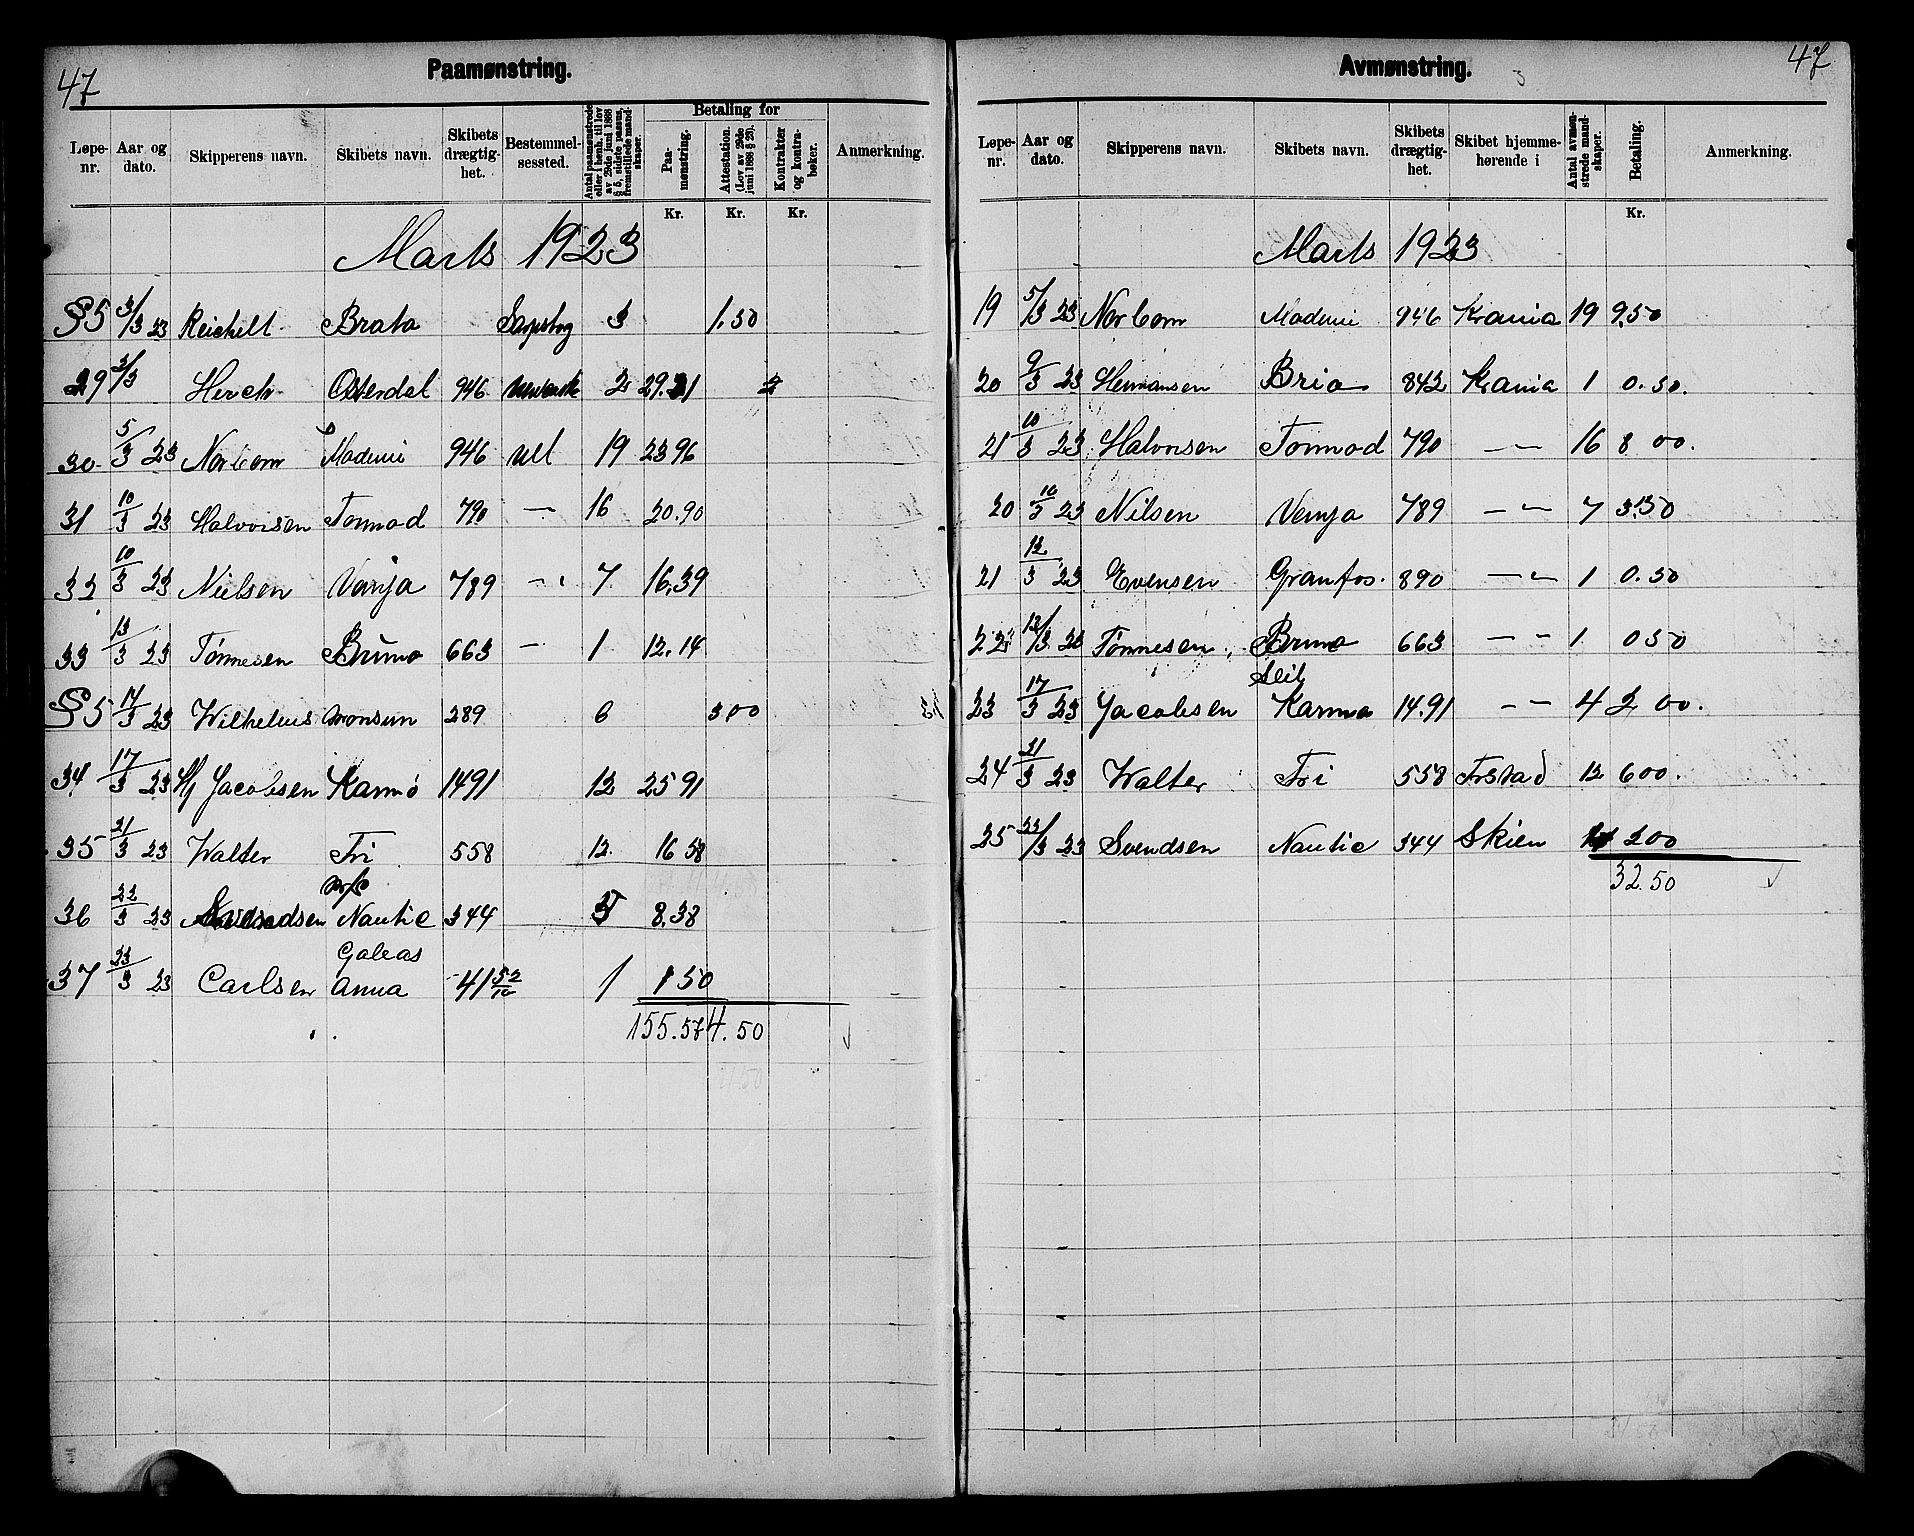 47
Paamønstring.
Løpe-nr. | Aar og dato. | Skipperens navn. | Skibets navn. | Skibets drægtig-het. | Bestemmel-sessted. | Antal paamønstrede eller i henh. til lov av 29de juni 1888 § 5, sidste passus, fremstillede mand-skaper. | Betaling for | Paa-mønstring. | Attestation. (Lov av 29de juni 1888 § 20). | Kontrakter og kontra-bøker. | Anmerkning.
Kr. | Kr. | Kr.
Marts 1923
§5 | 3/3 23 | Reichelt | Brato | Sarpsborg | 3 | 1.50
29 | 3/3 | Hersch | Østerdal | 946 | 2 | 29.21
30 | 5/3 23 | Norbom | Modemi | 946 | utl | 19 | 23 96
31 | 10/3 23 | Halvorsen | Tormod | 790 | — | 16 | 20.90
32 | 10/3 23 | Nielsen | Vanja | 789 | — | 7 | 16.39
33 | 13/3 23 | Tønnesen | Bruno | 663 | — | 1 | 12.14
§5 | 14/3 23 | Wilhelms | Monsun | 289 | 6 | 3 00
34 | 17/3 23 | Jacobsen | Karmø | 1491 | 12 | 25 91
35 | 21/3 23 | Walter | Fri | 558 | 12. | 16 58
36 | 22/3 23 | Svendsen | Nautic | 344 | 5 | 8.38
Galeas
37 | 23/3 23 | Carlsen | Anna | 41 52/10 | 1 | 1 50
155.57 | 4.50
47
Avmønstring.
Løpe-nr. | Aar og dato. | Skipperens navn. | Skibets navn. | Skibets drægtig-het. | Skibet hjemme-hørende i | Antal avmøn-strede mand-skaper. | Betaling. | Anmerkning.
Kr.
Marts 1923
19 | 5/3 23 | Norbom | Modemi | 946 | Krania | 19 | 9.50
20 | 9/3 23 | Hermansen | Brio | 842 | Krania | 1 | 0.50.
21 | 10/3 23 | Halvorsen | Tormod | 790 | — " — | 16 | 8 00.
20 | 10/3 23 | Nilsen | Vanja | 789 | — " — | 7 | 3.50
21 | 12/3 23 | Evensen | Granfos. | 890 | — " — | 1 | 0.50
22 | 13/3 23 | Tønnesen | Bruno | 663 | — " — | 1. | 0 50
Seil
23 | 17/3 23 | Jacobsen | Karmø | 14.91 | — " — | 4 | 2 00.
24 | 21/3 23 | Walter | Fri | 558 | Frstad | 12 | 6 00.
25 | 22/3 23 | Svendsen | Nautic | 344 | Skien | 4 | 2 00
32.50